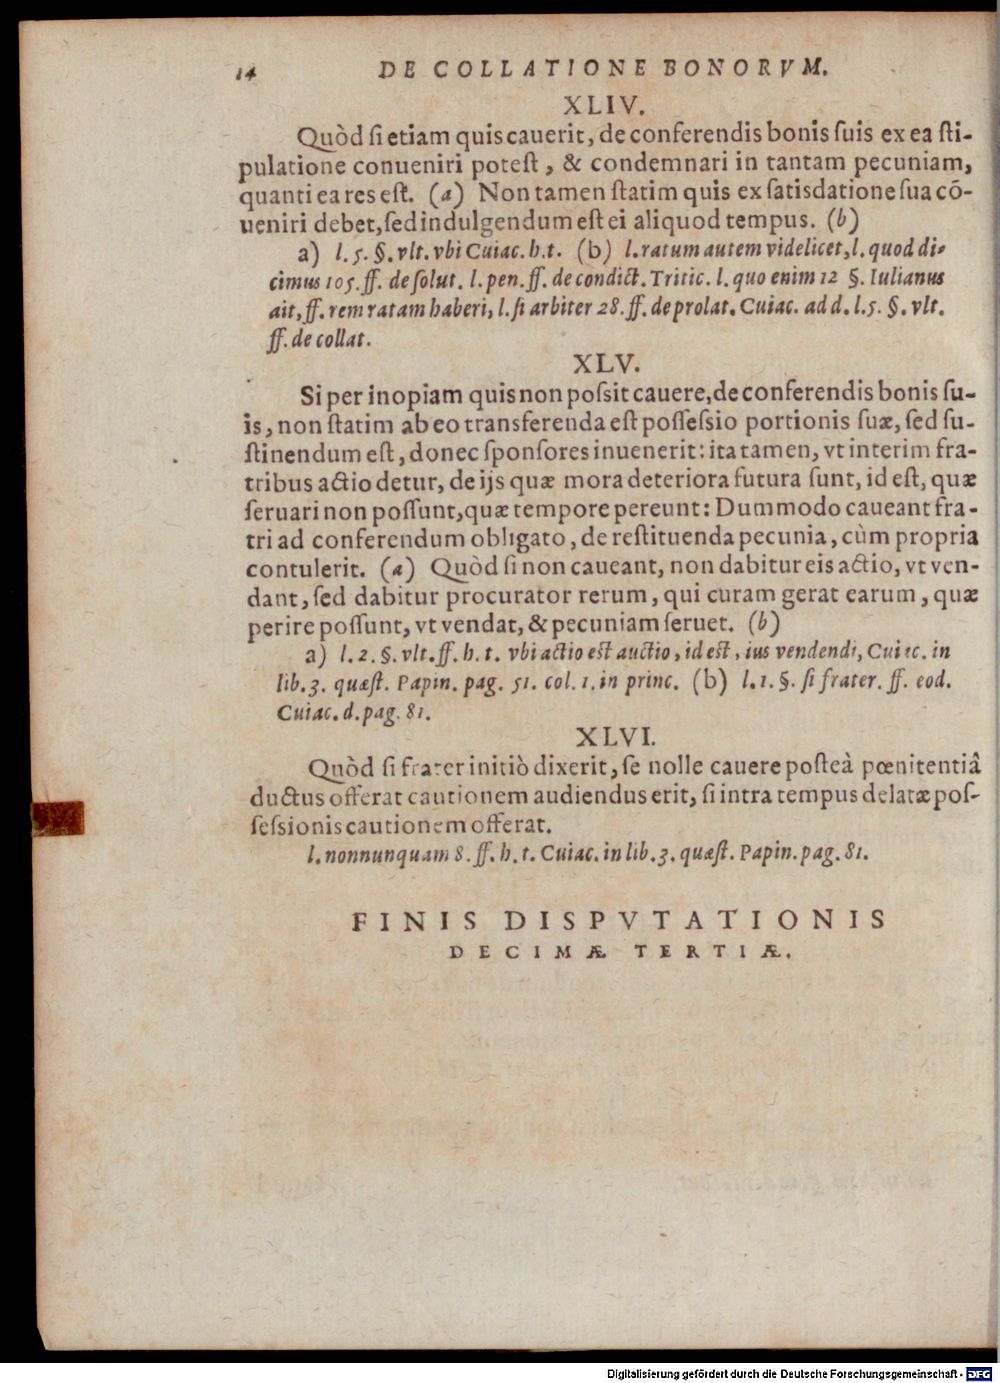 14 DE COLLATIONE BONORVM.
XLIV.
Quòd si etiam quis cauerit, de conferendis bonis suis ex ea sti-
pulatione conueniri potest, & condemnari in tantam pecuniam,
quanti ea res est. (a) Non tamen statim quis ex satisdatione sua cō-
ueniri debet, sed indulgendum est ei aliquod tempus. (b)
a) l. 5. §. vlt. vbi Cuiac. h. t. (b) l. ratum autem videlicet, l. quod di-
cimus 105. ff. de solut. l. pen. ff. de condict. Tritic. l. quo enim 12 §. Iulianus
ait, ff. rem ratam haberi, l. si arbiter 28. ff. de prolat. Cuiac. ad d. l. 5. §. vlt.
ff. de collat.
XLV.
Si per inopiam quis non possit cauere, de conferendis bonis su-
is, non statim ab eo transferenda est possessio portionis suæ, sed su-
stinendum est, donec sponsores inuenerit: ita tamen, vt interim fra-
tribus actio detur, de ijs quæ mora deteriora futura sunt, id est, quæ
seruari non possunt, quæ tempore pereunt: Dummodo caueant fra-
tri ad conferendum obligato, de restituenda pecunia, cùm propria
contulerit. (a) Quòd si non caueant, non dabitur eis actio, vt ven-
dant, sed dabitur procurator rerum, qui curam gerat earum, quæ
perire possunt, vt vendat, & pecuniam seruet. (b)
a) l. 2. §. vlt. ff. h. t. vbi actio est auctio, id est, ius vendendi, Cuiac. in
lib. 3. quæst. Papin. pag. 51. col. 1. in princ. (b) l. 1. §. si frater. ff. eod.
Cuiac. d. pag. 81.
XLVI.
Quòd si frater initiò dixerit, se nolle cauere posteà pœnitentiâ
ductus offerat cautionem audiendus erit, si intra tempus delatæ pos-
sessionis cautionem offerat.
l. nonnunquam 8. ff. h. t. Cuiac. in lib. 3. quæst. Papin. pag. 81.
FINIS DISPVTATIONIS
DECIMÆ TERTIÆ.
Digitalisierung gefördert durch die Deutsche Forschungsgemeinschaft - DFG